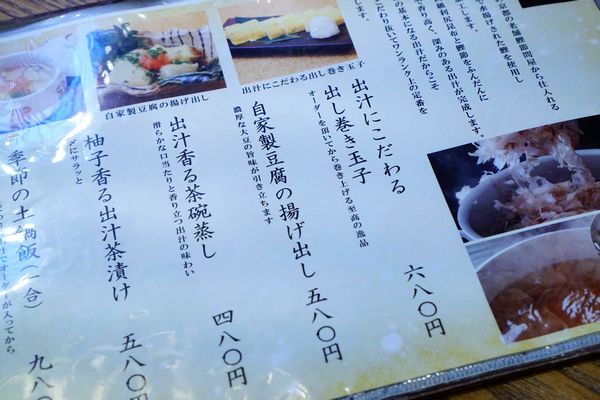 の京都の老舗鰹節問屋から仕入れる
水揚げされた鰹を使用し
級利尻昆布と鰹節をふんだんに
で香り高く、深みのある出汁が完成します。
の基本になる出汁だからこそ
こだわり抜いてワンランク上の定番を
します。
出汁にこだわる出し巻き玉子
自家製豆腐の揚げ出し
出汁にこだわる
出し巻き玉子
六八〇円
オーダーを頂いてから巻き上げる至高の逸品
自家製豆腐の揚げ出し
五八〇円
濃厚な大豆の旨味が引き立ちます
出汁香る茶碗蒸し
四八〇円
滑らかな口当たりと香り立つ出汁の味わい
柚子香る出汁茶漬け
五八〇円
〆にサラッと
季節の土鍋飯(一合)
九八〇
オーダーが入ってから